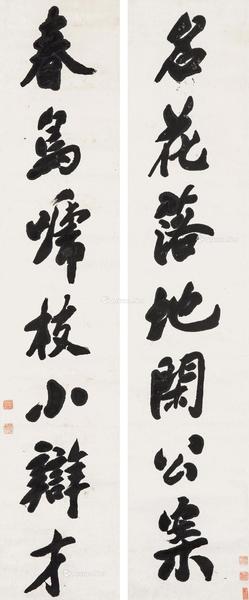 名花落地閑公案
春鳥啼枝小辯才